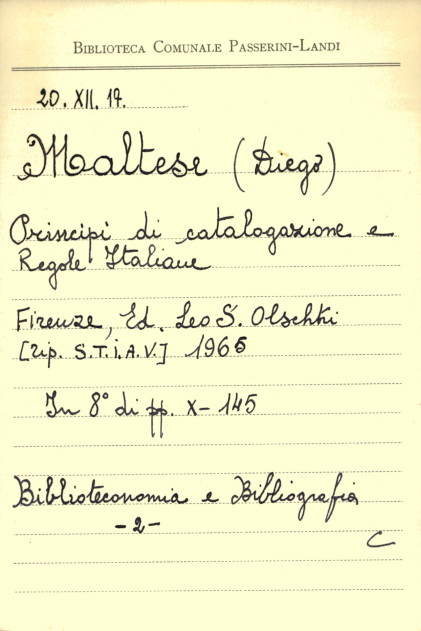 BIBLIOTECA COMUNALE PASSERINI-LANDI
20. XII. 17.
Maltese (Diego)
Principi di catalogazione e
Regole Italiane
Firenze, Ed. Leo S. Olschki
[Tip. S.T.i.A.V.] 1965
In 8° di pp. X-145
Biblioteconomia e Bibliografia
-2-
C